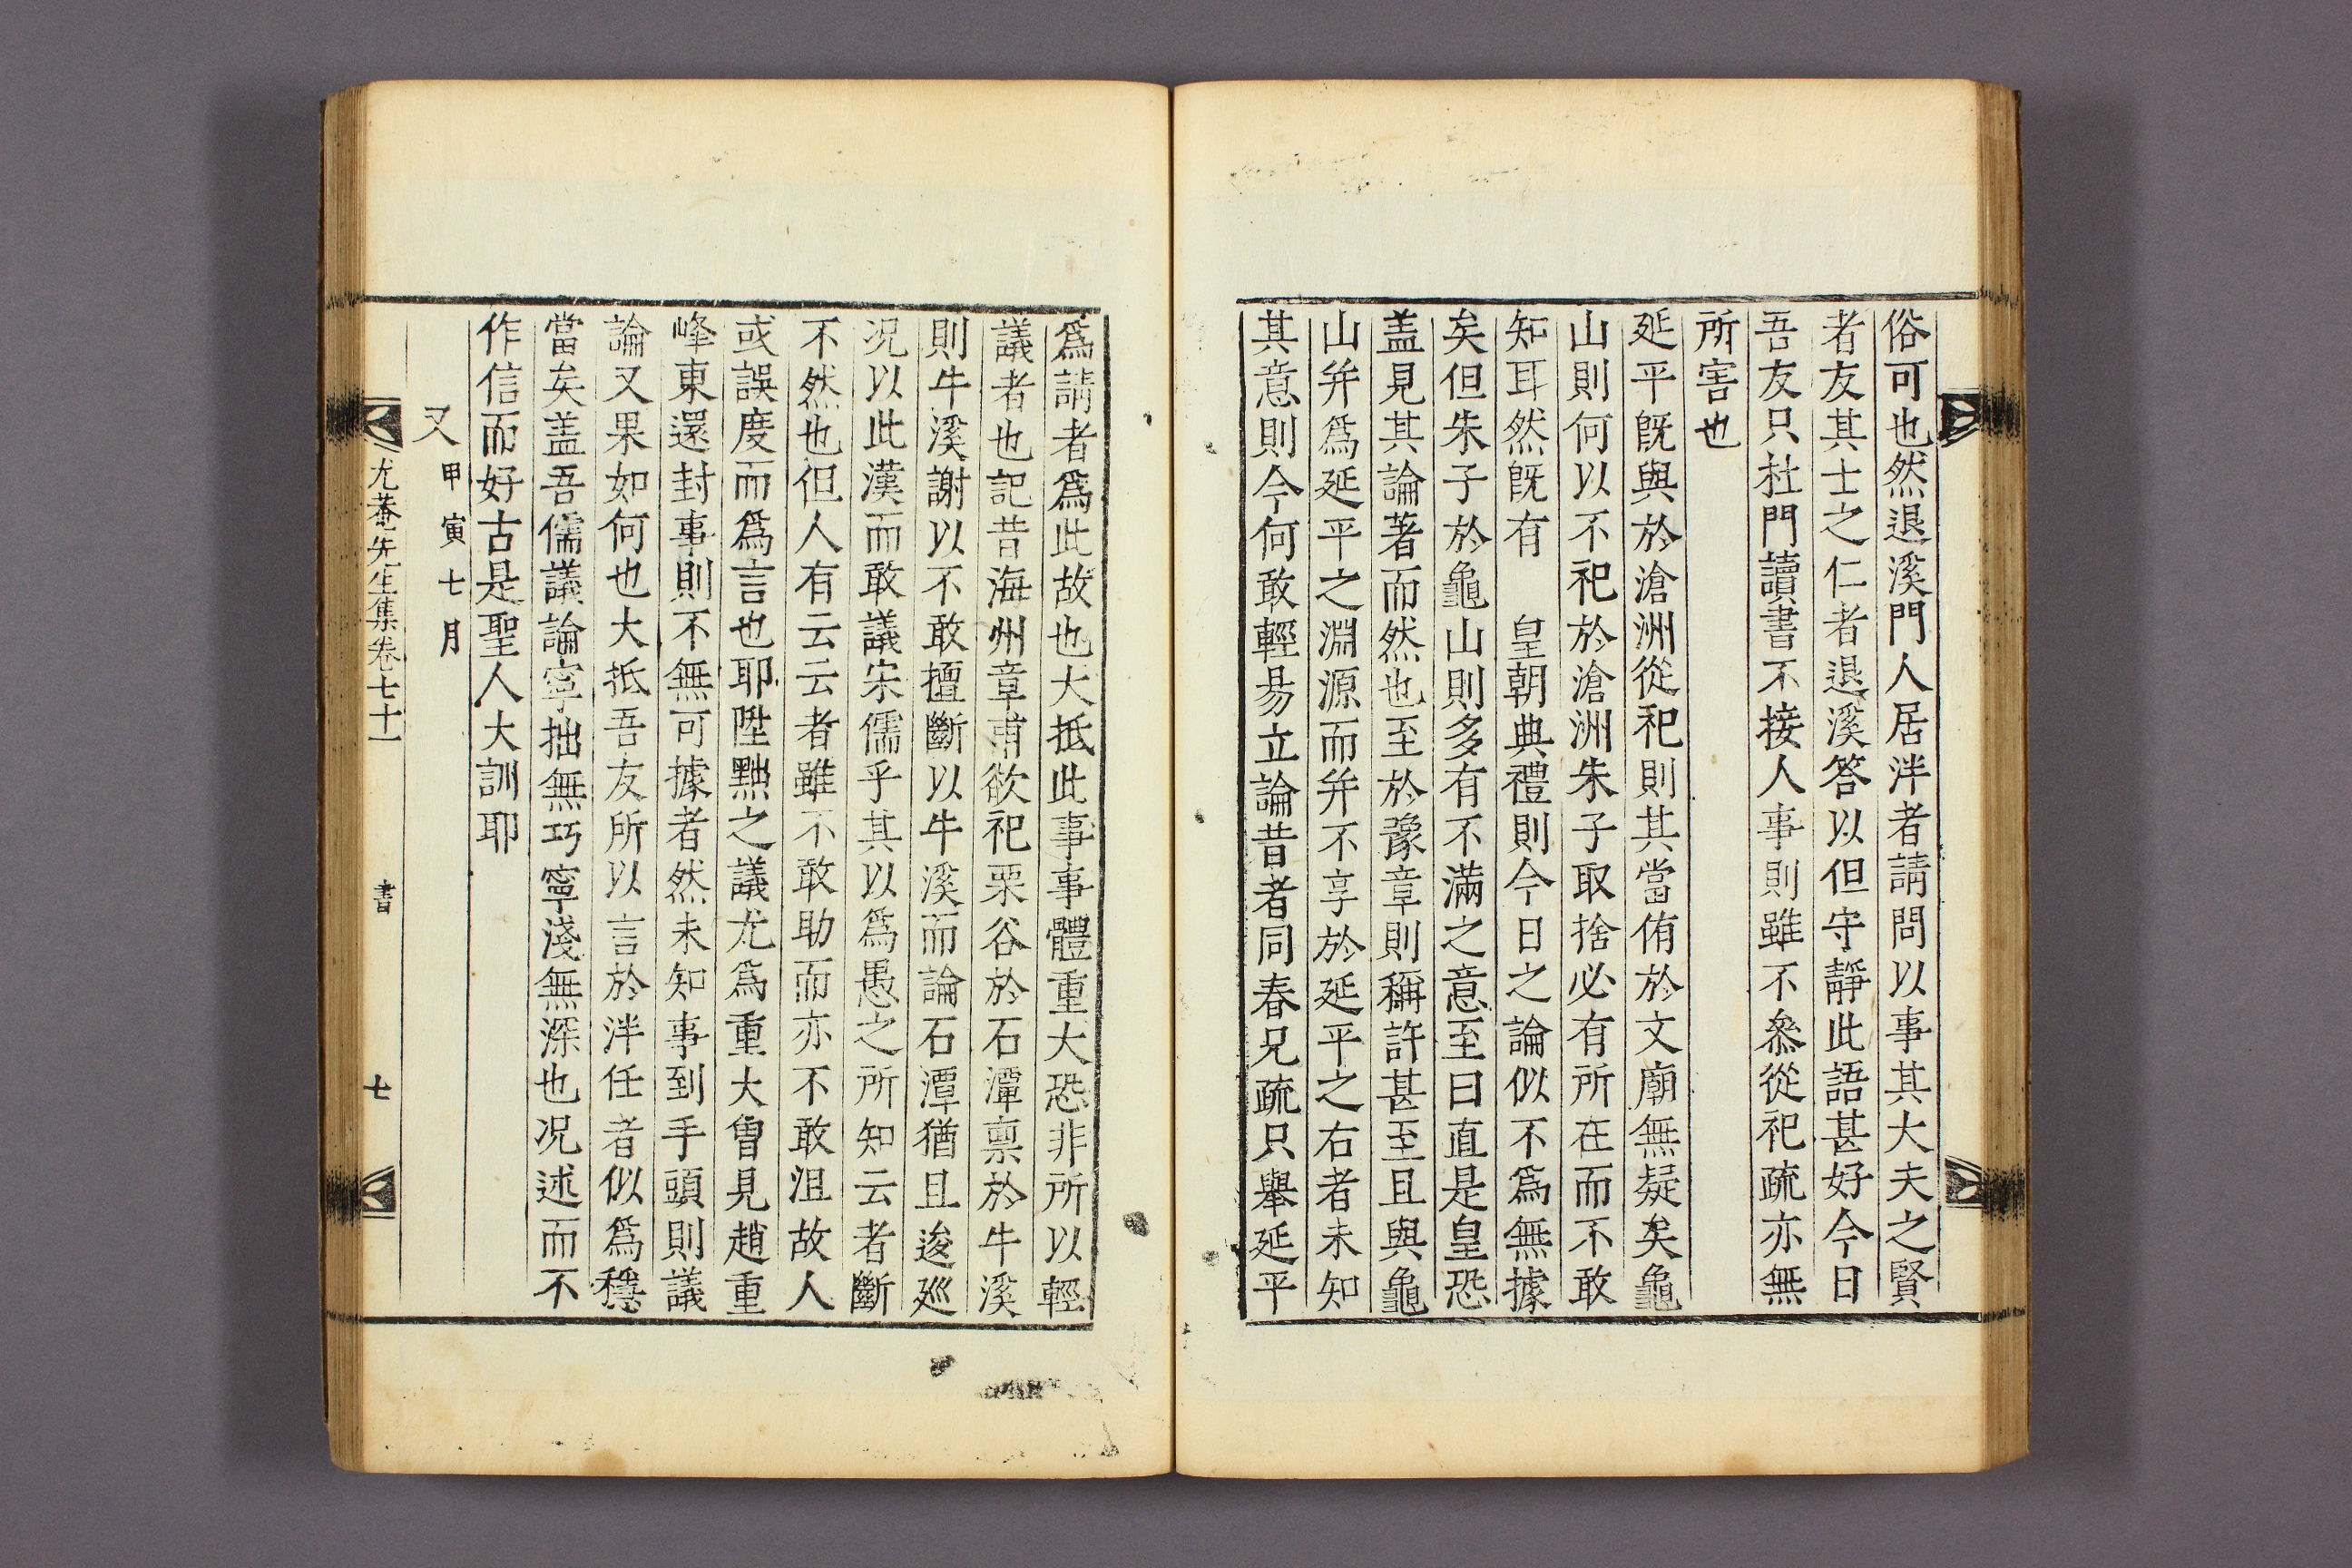 俗可也然退溪門人居泮者請問以事其大夫之賢
者友其士之仁者退溪答以但守靜此語甚好今日
吾友只杜門讀書不接人事則雖不叅從祀疏亦無
所害也
延平旣與於滄洲從祀則其當侑於文廟無疑矣龜
山則何以不祀於滄洲朱子取捨必有所在而不敢
知耳然旣有　皇朝典禮則今日之論似不爲無據
矣但朱子於龜山則多有不滿之意至曰直是皇恐
盖見其論著而然也至於豫章則稱許甚至且與龜
山幷爲延平之淵源而幷不享於延平之右者未知
其意則今何敢輕易立論昔者同春兄疏只擧延平
爲請者爲此故也大抵此事事體重大恐非所以輕
議者也記昔海州章甫欲祀栗谷於石潭稟於牛溪
則牛溪謝以不敢擅斷以牛溪而論石潭猶且逡巡
况以此漢而敢議宋儒乎其以爲愚之所知云者斷
不然也但人有云云者雖不敢助而亦不敢沮故人
或誤度而爲言也耶陞黜之議尤爲重大曾見趙重
峰東還封事則不無可據者然未知事到手頭則議
論又果如何也大抵吾友所以言於泮任者似爲穩
當矣盖吾儒議論寧拙無巧寧淺無深也况述而不
作信而好古是聖人大訓耶
又甲寅七月
尤菴先生集卷七十一　書　七